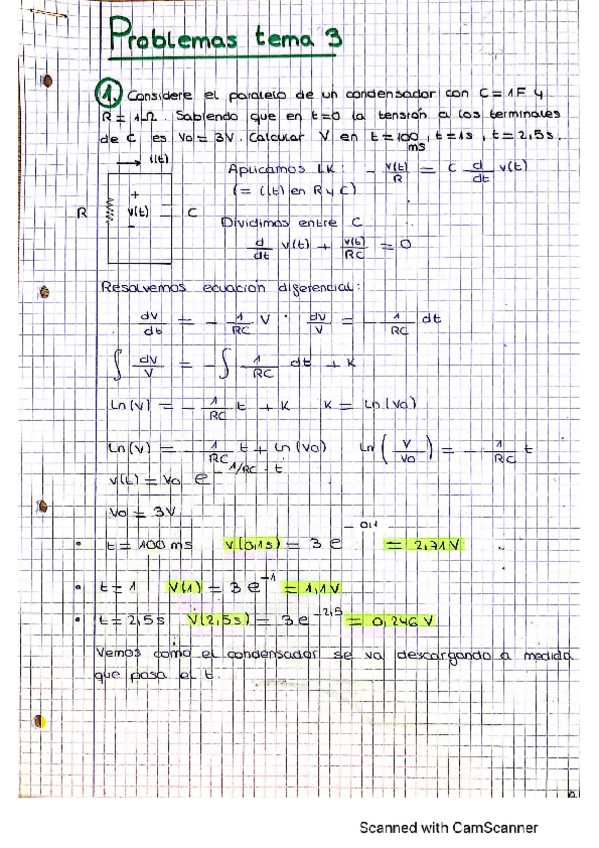 Problemas tema 3
1. Considere el paralelo de un condensador con C = 1F y
R = 1Ω. Sabiendo que en t=0 la tensión a los terminales
de C es Vo = 3V. Calcular V en t = 100 ms, t = 1s, t = 2,5s.
i(t)
Aplicamos LK: - v(t)/R = C d/dt v(t)
(= i(t) en R y C)
R + v(t) - C
Dividimos entre C
d/dt v(t) + v(t)/RC = 0
Resolvemos ecuación diferencial:
dv/dt = - 1/RC V · dv/V = - 1/RC dt
∫ dv/V = - ∫ 1/RC dt + K
Ln(v) = - 1/RC t + K K = Ln(Vo)
Ln(v) = - 1/RC t + Ln(Vo) Ln(V/Vo) = - 1/RC t
v(t) = Vo e^-1/RC · t
Vo = 3V
• t = 100 ms v(0,1s) = 3 e^-0,1 = 2,71V
• t = 1 V(1) = 3 e^-1 = 1,1V
• t = 2,5s V(2,5s) = 3e^-2,5 = 0,246 V
Vemos como el condensador se va descargando a medida
que pasa el t.
Scanned with CamScanner